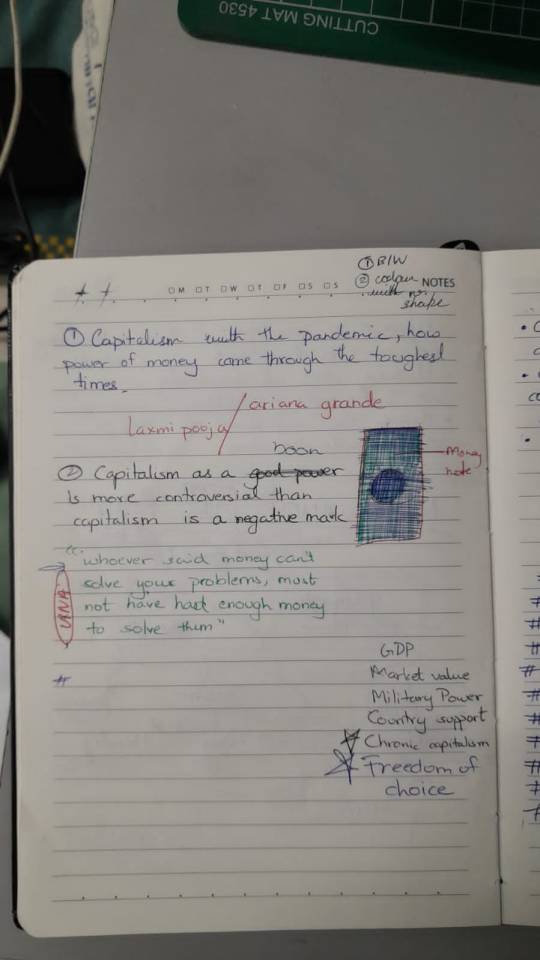 CUTTING MAT 4530
① B/W
② colour
with no
shape
M T W T F S S
NOTES
① Capitalism with the pandemic, how
power of money came through the toughest
times.
laxmi pooja / ariana grande
boon
② Capitalism as a good power
Is more controversial than
capitalism is a negative mark
Money
note
"whoever said money can't
solve your problems, must
not have had enough money
to solve them"
#
GDP
Market value
Military Power
Country support
Chronic capitalism
Freedom of
choice